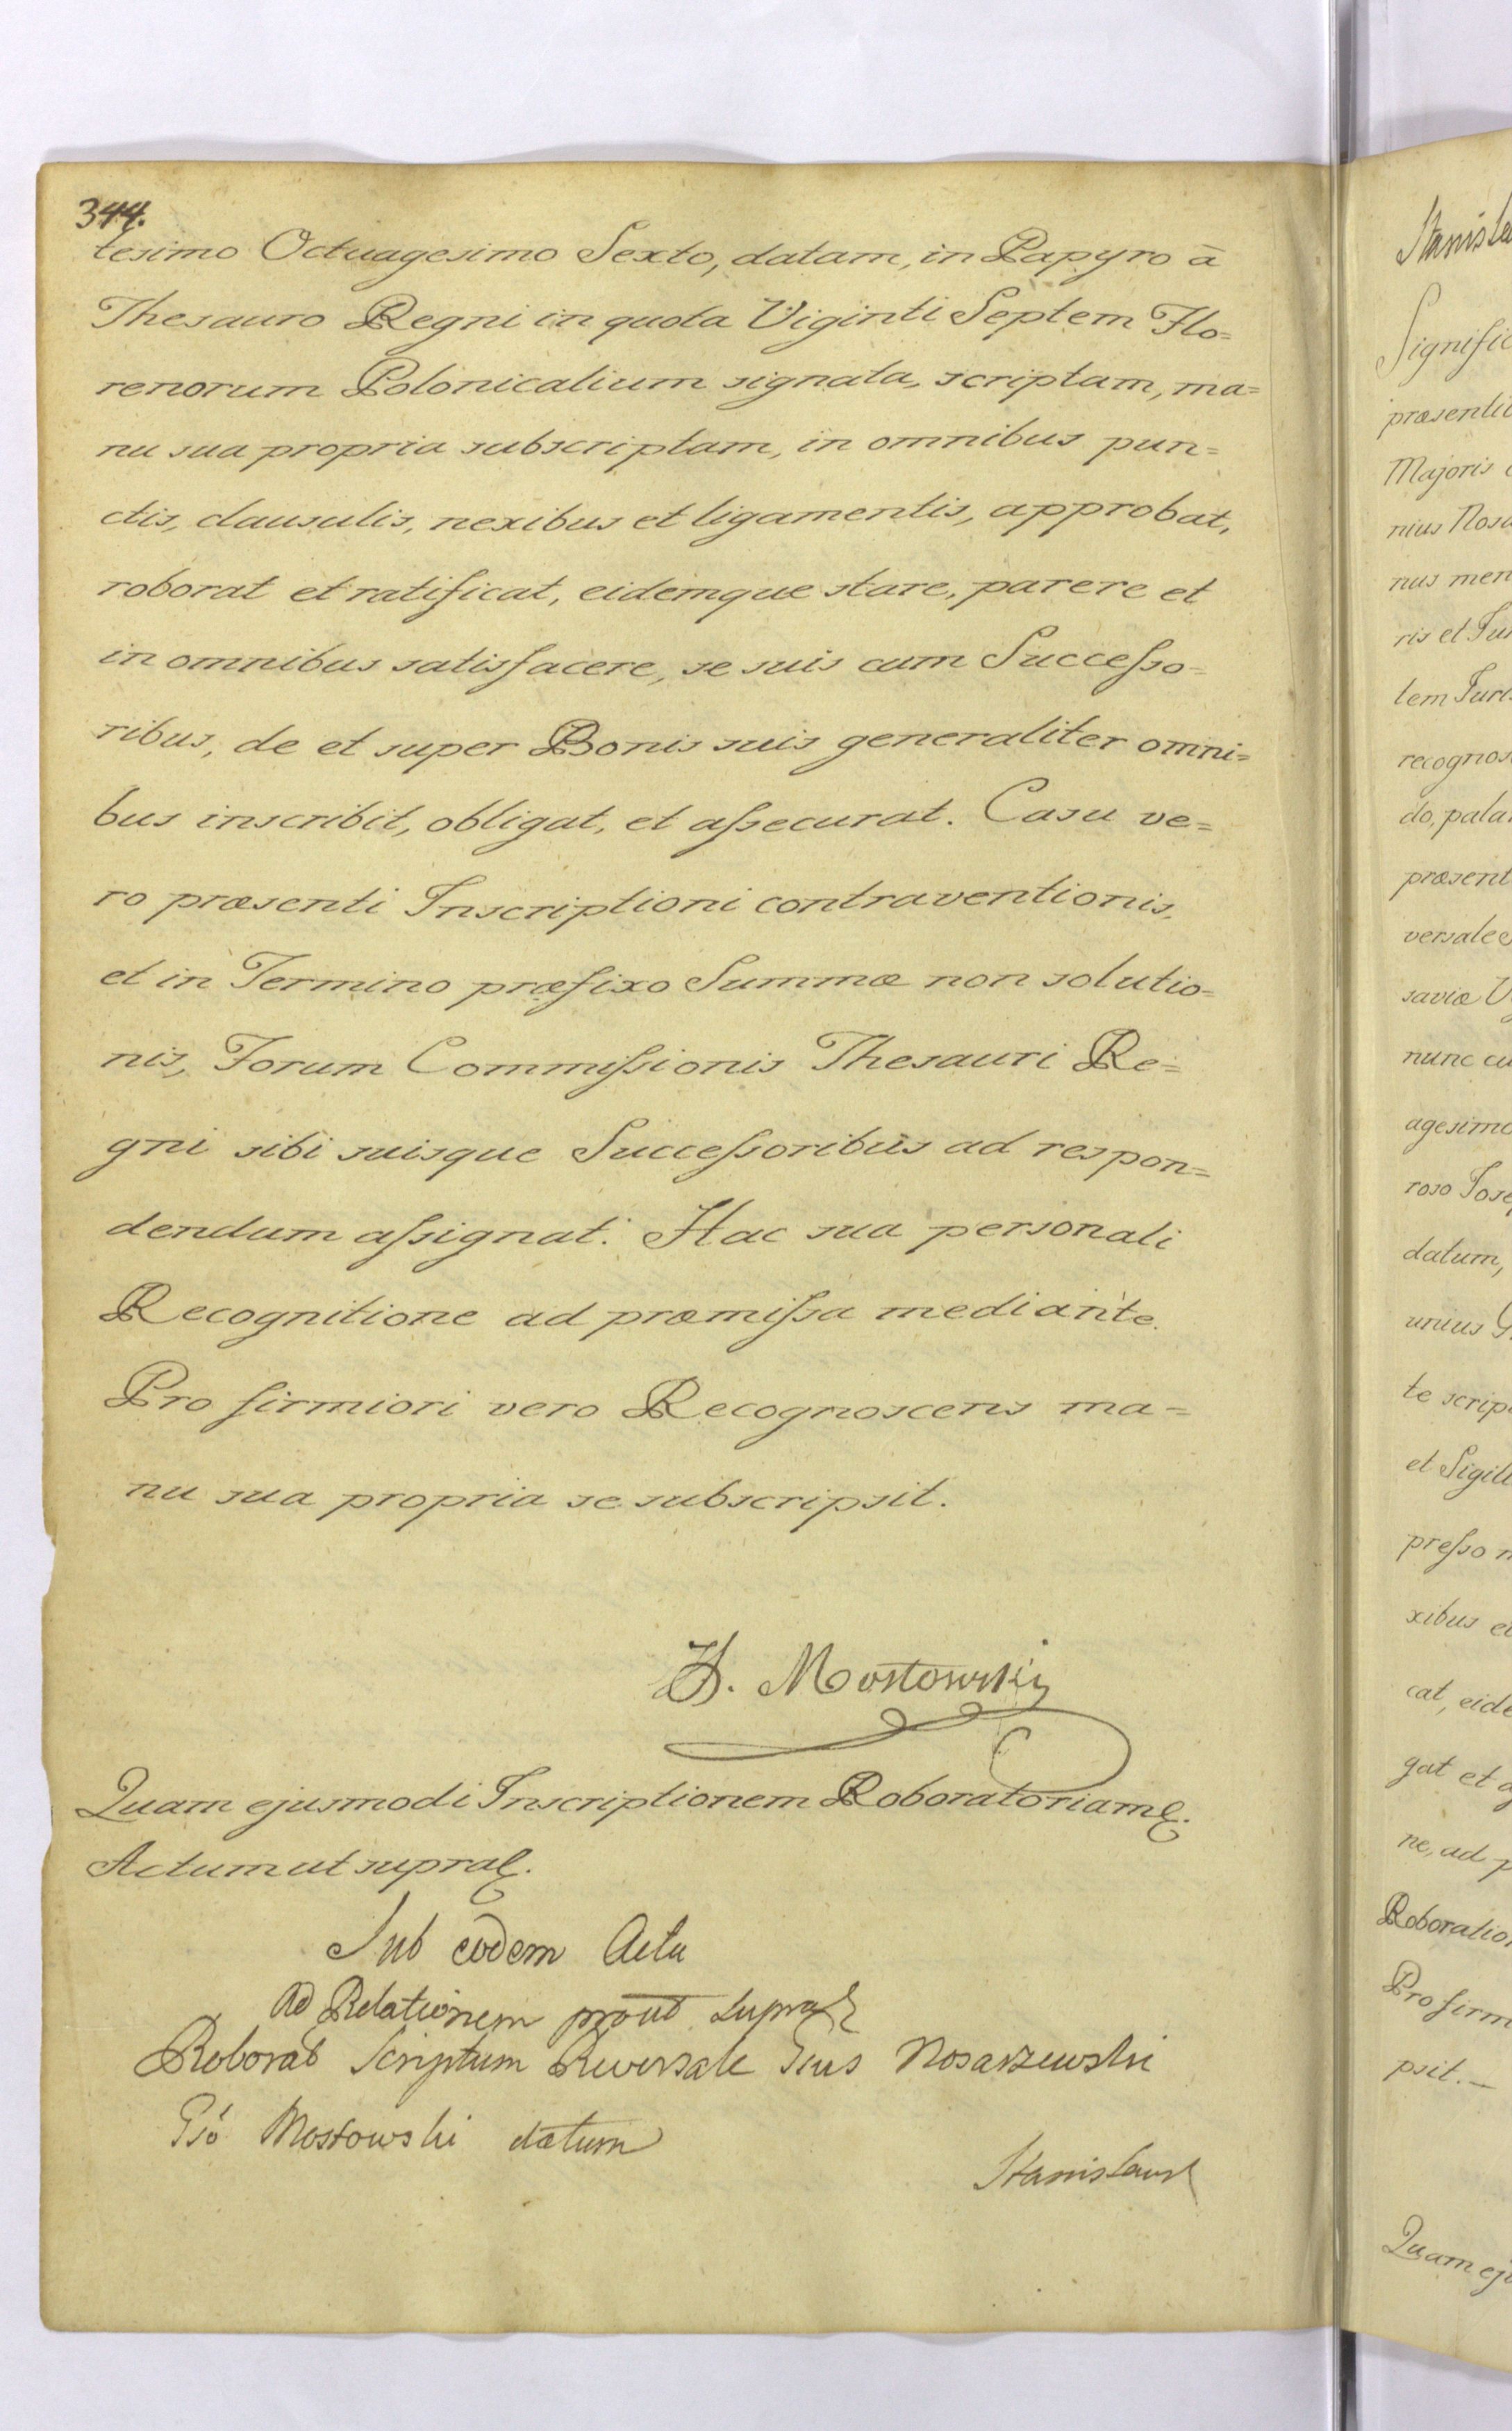 344.
tesimo Octuagesimo Sexto, datam, in Papyro à
Thesauro Regni in quota Viginti Septem Flo=
renorum Polonicalium signata, scriptam, ma=
nu sua propria subscriptam, in omnibus pun=
ctis, clausulis, nexibus et ligamentis, approbat,
roborat et ratificat, eidemque stare, parere et
in omnibus satisfacere, se suis cum Succeſso=
ribus, de et super Bonis suis generaliter omni=
bus inscribit, obligat, et aſsecurat. Casu ve=
ro præsenti Inscriptioni contraventionis,
et in Termino præfixo Summæ non solutio=
nis, Forum Commiſsionis Thesauri Re=
gni sibi suisque Succeſsoribus ad respon=
dendum aſsignat. Hac sua personali
Recognitione ad præmiſsa mediante.
Pro firmiori vero Recognoscens ma=
nu sua propria se subscripsit.
Mostowski
Quam ejusmodi Inscriptionem Roboratoriam
Actum ut supra
Sub eodem Actu
Ad Relationem prout supra
Roborat Scriptum Reversale Nosarzewski
Mostowski datum
Stanislaus
Stanisla
Signific
præsenti
Majoris
nius Nosa
nus men
ris et Su
tem Juri
recognos
do, pala
præsent
versale
saviæ V
nunc cu
agesimo
roso Jose
datum,
unius G
te scrip
et Sigill
preſso n
xibus et
cat, eide
gat et a
ne, ad p
Roboration
Pro firm
psit.
Quam ej